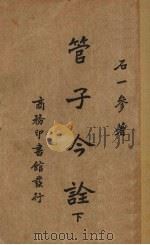 石一參著
管子今詮下
商務印書館發行